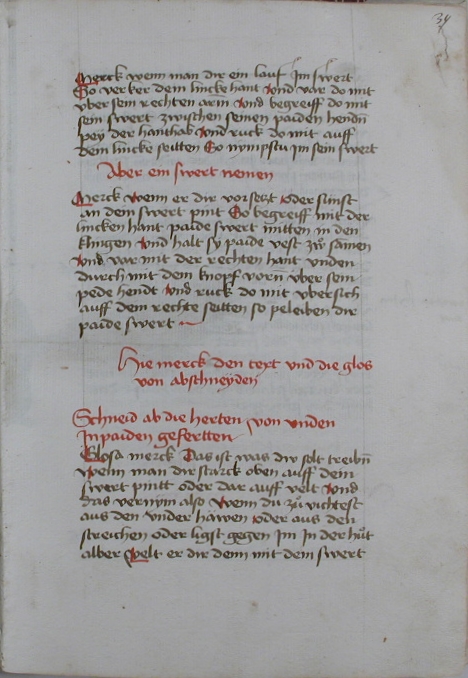 34
Merck wenn man dir ein lauf Im swert
So verker dein lincke hant Vnd var do mit
vber sein rechten arm Vnd begreiff do mit
sein swert zwischen seinen paiden henden
pey der hanthab Vnd ruck do mit auff
dein lincke seitten So nympstu im sein swert
Aber ein swert nemen
Merck Wenn er dir vorsetzt oder sunst
an dem swert pint So begreiff mit der
lincken hant paide swert mitten in den
klingen Vnd halt sy paide vest zw samen
Vnd var mit der rechten hant vnden
durch mit dem knopf vorn vber sein
pede hendt Vnd ruck do mit vbersich
auff dein rechte seitten so peleiben dir
paide swert
Hie merck den text vnd die glos
von abschneyden
Schneid ab die herten von vnden
In paiden gefertten
Glosa merck Das ist was dw solt treibn
Wenn man dir starck oben auff dein
swert pintt oder dar auff velt Vnd
das vernym also Wenn du zu vichtest
aus den vnder hawen oder aus den
streichen oder ligst gegen Im In der hut
alber Velt er dir denn mit dem swert